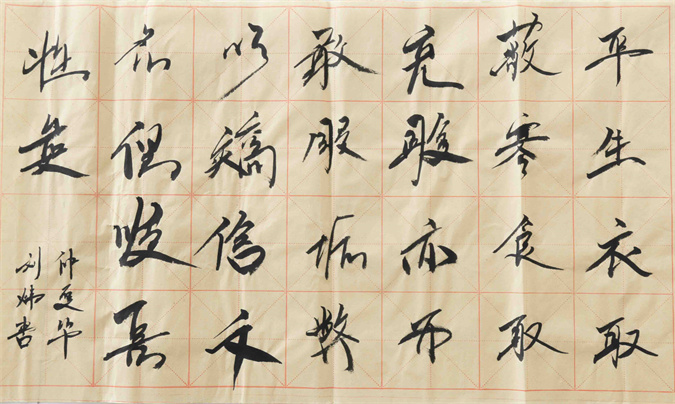 平生衣取
蔽寒食取
充腹亦不
敢服垢弊
以矯
名但吾
性
仲夏
刘炜书